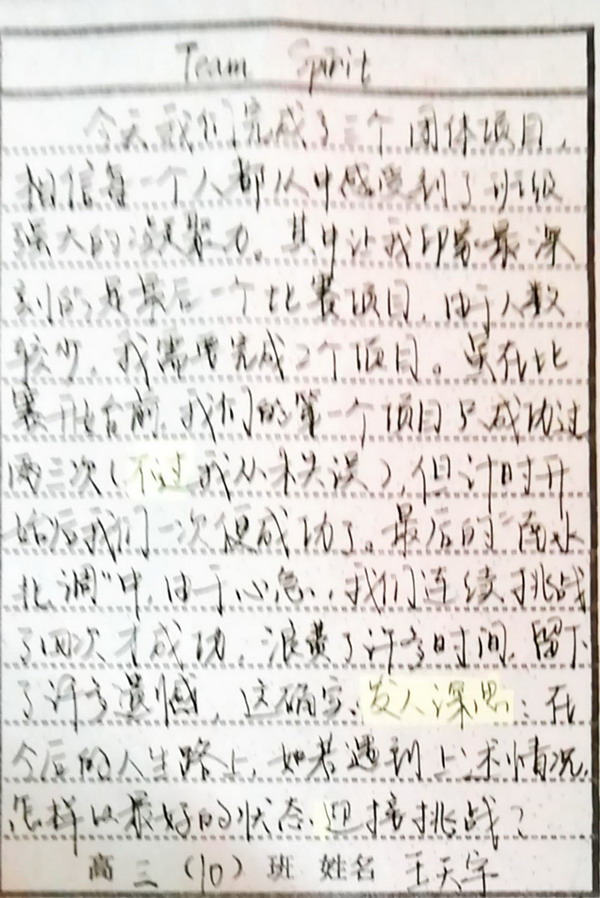 Team Spirit
今天我们完成了三个团体项目,
相信每一个人都从中感受到了班级
强大的凝聚力。其中让我印象最深
刻的是最后一个比赛项目,由于人数
较少,我需要完成2个项目。虽在比
赛开始前,我们的第一个项目只成功过
两三次(不过我从未失误),但计时开
始后我们一次便成功了。最后的“南水
北调”中,由于心急,我们连续挑战
了四次才成功,浪费了许多时间,留下
了许多遗憾,这确实发人深思:在
今后的人生路上,如若遇到上述情况,
怎样以最好的状态迎接挑战?
高三(10)班 姓名 王天宇